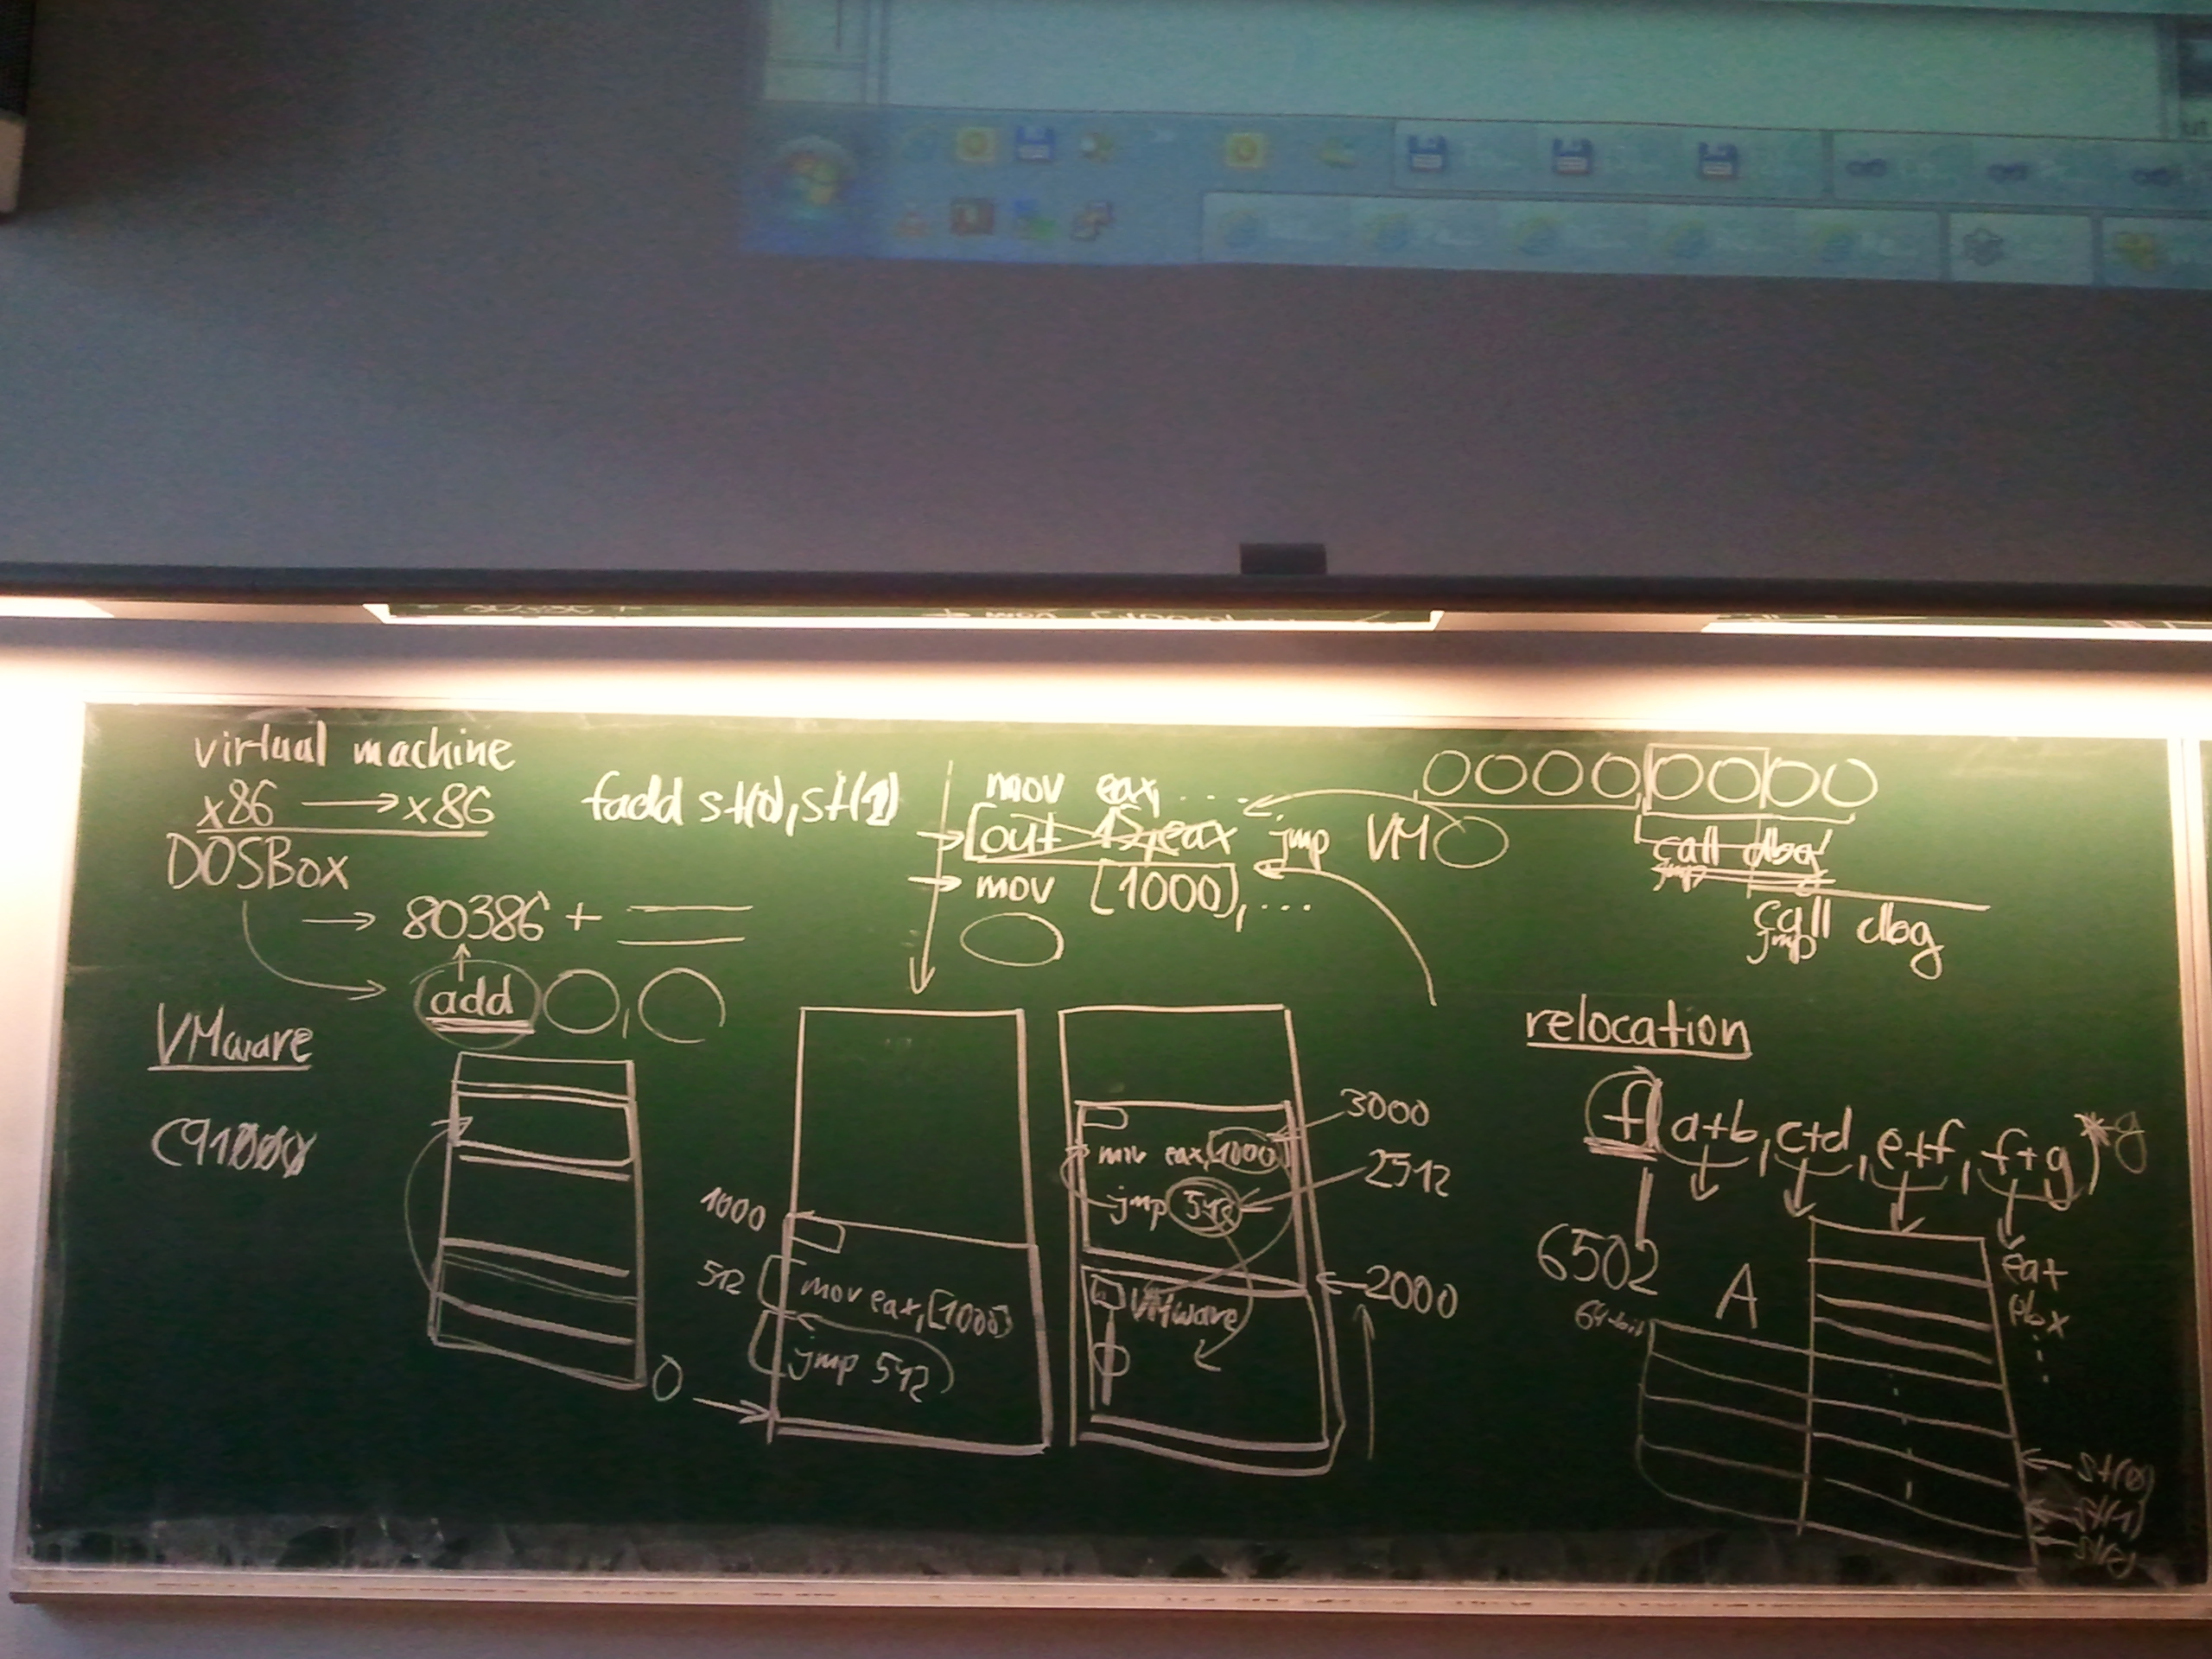 virtual machine
x86 → x86
DOSBox
→ 80386 +
add ,
VMware
fadd st(0), st(1)
mov eax, ....
out 12, eax jmp VM
mov [1000], ...
0
1000
512
mov eax, [1000]
jmp 512
3000
mov eax, [1000]
2512
jmp 512
2000
VMware
call dbg
jmp
call dbg
jmp
relocation
f(a+b, c+d, e+f, f+g)*g
6502
A
64-bit
eax
st(0)
st(1)